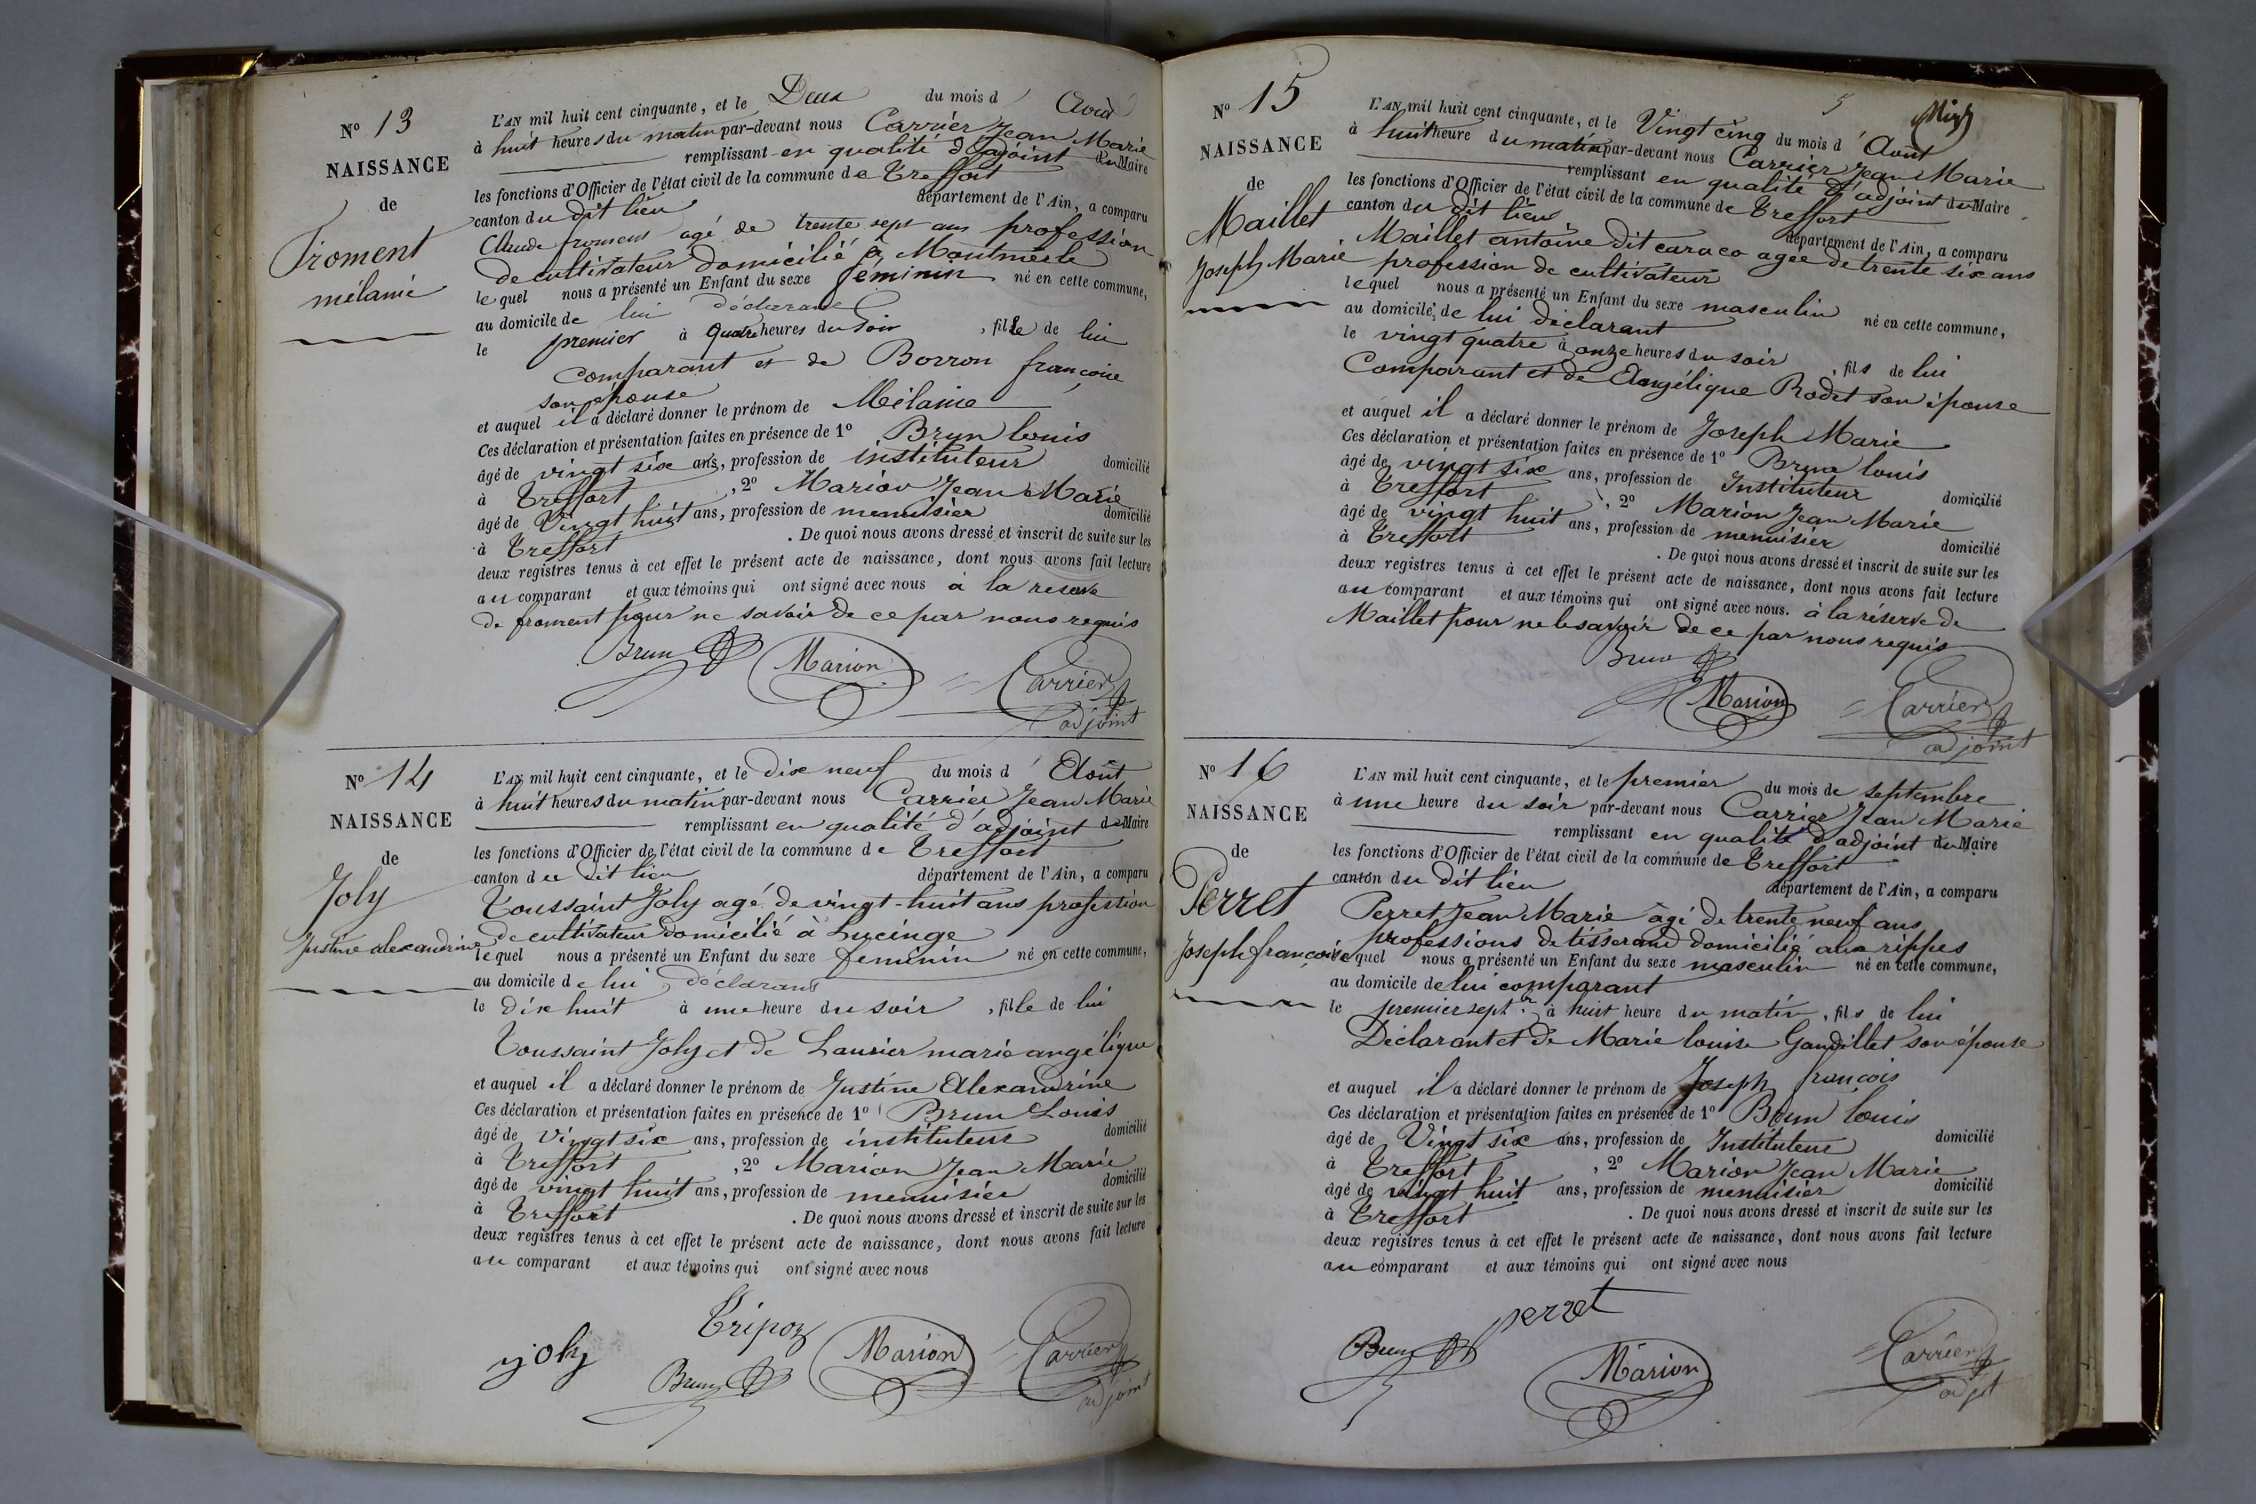 N° 13
NAISSANCE
de
Froment
mélanie
L'AN mil huit cent cinquante, et le Deux du mois d' Août
à huit heures du matin par-devant nous Carrier Jean Marie
remplissant en qualité d'adjoint du Maire
les fonctions d'Officier de l'état civil de la commune de Treffort
canton du dit lieu département de l'Ain, a comparu
Claude froment agé de trente sept ans profession
de cultivateur domicilié à Montmerle
lequel nous a présenté un Enfant du sexe féminin né en cette commune,
au domicile de lui déclarant
le premier à quatre heures du soir , fille de lui
Comparant et de Borron françoise
son épouse
et auquel il a déclaré donner le prénom de Mélanie
Ces déclaration et présentation faites en présence de 1° Brun louis
âgé de vingt six ans, profession de instituteur domicilié
à Treffort , 2° Marion Jean Marie
âgé de Vingt huit ans, profession de menuisier domicilié
à Treffort . De quoi nous avons dressé et inscrit de suite sur les
deux registres tenus à cet effet le présent acte de naissance, dont nous avons fait lecture
au comparant et aux témoins qui ont signé avec nous à la reserve
de froment pour ne savoir de ce par nous requis
Brun Marion Carrier
adjoint
N° 14
NAISSANCE
de
Joly
Justine alexandrine
L'AN mil huit cent cinquante, et le dix neuf du mois d' Août
à huit heures du matin par-devant nous Carrier Jean Marie
remplissant en qualité d'adjoint de Maire
les fonctions d'Officier de l'état civil de la commune de Treffort
canton du dit lieu département de l'Ain, a comparu
Toussaint Joly agé de vingt-huit ans profession
de cultivateur domicilié à Lucinge
lequel nous a présenté un Enfant du sexe feminin né en cette commune,
au domicile de lui déclarant
le dix huit à une heure du soir , fille de lui
Toussaint Joly et de Laurier marie angélique
et auquel il a déclaré donner le prénom de Justine Alexandrine
Ces déclaration et présentation faites en présence de 1° Brun Louis
âgé de Vingt six ans, profession de instituteur domicilié
à Treffort , 2° Marion Jean Marie
âgé de vingt huit ans, profession de menuisier domicilié
à Treffort . De quoi nous avons dressé et inscrit de suite sur les
deux registres tenus à cet effet le présent acte de naissance, dont nous avons fait lecture
au comparant et aux témoins qui ont signé avec nous
Tripoz
joly Brun Marion Carrier
adjoint
5
N° 15
NAISSANCE
de
Maillet
Joseph Marie
L'AN mil huit cent cinquante, et le Vingt cinq du mois d' Août
à huit heure du matin par-devant nous Carrier Jean Marie
remplissant en qualité d'adjoint du Maire
les fonctions d'Officier de l'état civil de la commune de Treffort
canton du dit lieu département de l'Ain, a comparu
Maillet antoine dit caraco agée de trente six ans
profession de cultivateur
lequel nous a présenté un Enfant du sexe masculin né en cette commune,
au domicile, de lui déclarant
le vingt quatre à onze heures du soir , fils de lui
Comparant et de Angélique Rodet son épouse
et auquel il a déclaré donner le prénom de Joseph Marie
Ces déclaration et présentation faites en présence de 1° Brun louis
âgé de vingt six ans, profession de Instituteur domicilié
à Treffort , 2° Marion Jean Marie
âgé de vingt huit ans, profession de menuisier domicilié
à Treffort . De quoi nous avons dressé et inscrit de suite sur les
deux registres tenus à cet effet le présent acte de naissance, dont nous avons fait lecture
au comparant et aux témoins qui ont signé avec nous. à la réserve de
Maillet pour ne le savoir de ce par nous requis
Brun
Marion Carrier
adjoint
N° 16
NAISSANCE
de
Perret
Joseph françois
L'AN mil huit cent cinquante, et le premier du mois de septembre
à une heure du soir par-devant nous Carrier Jean Marie
remplissant en qualité d'adjoint du Maire
les fonctions d'Officier de l'état civil de la commune de Treffort
canton du dit lieu département de l'Ain, a comparu
Perret Jean Marie âgé de trente neuf ans
professions de tisserand domicilié aux rippes
lequel nous a présenté un Enfant du sexe masculin né en cette commune,
au domicile de lui comparant
le premier sept.br à huit heure du matin , fils de lui
Déclarant et de Marie louise Gaudillet son épouse
et auquel il a déclaré donner le prénom de Joseph francois
Ces déclaration et présentation faites en présence de 1° Brun louis
âgé de Vingt six ans, profession de Instituteur domicilié
à Treffort , 2° Marion Jean Marie
âgé de vingt huit ans, profession de menuisier domicilié
à Treffort . De quoi nous avons dressé et inscrit de suite sur les
deux registres tenus à cet effet le présent acte de naissance, dont nous avons fait lecture
au comparant et aux témoins qui ont signé avec nous
perret
Brun Marion Carrier
adjt